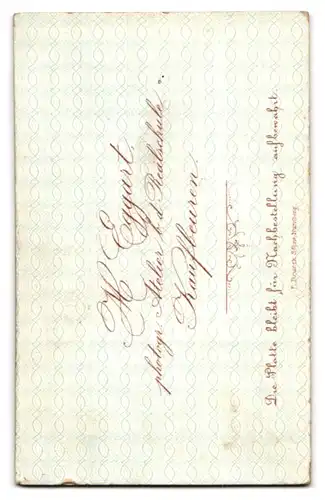 H. Eggart.
photogr. Atelier b. d. Realschule
Kaufbeuren.
Die Platte bleibt für Nachbestellung aufbewahrt.